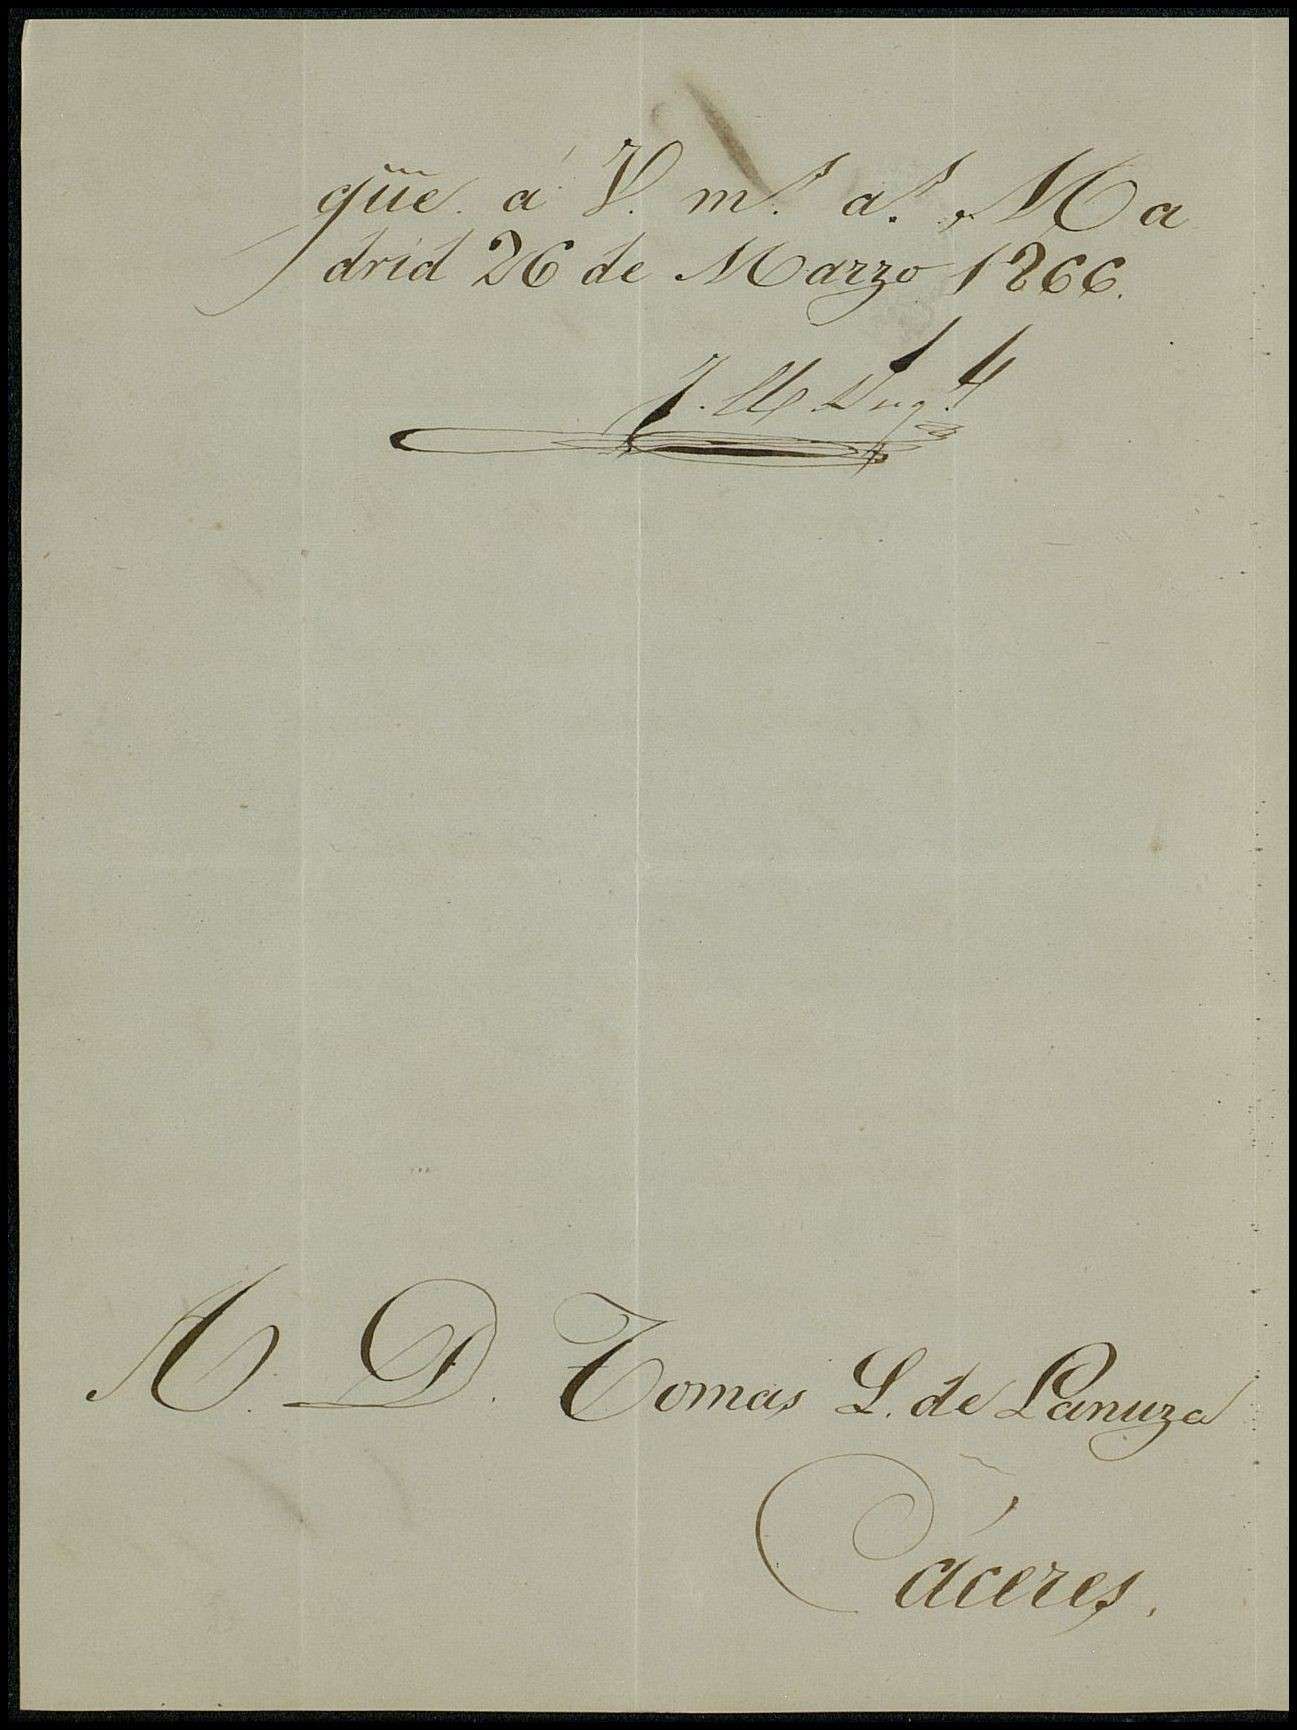 güe. á V. m.s a.s Ma
drid 26 de Marzo 1866.
J. M.
A. D. Tomas L. de Lanuza
Cáceres.